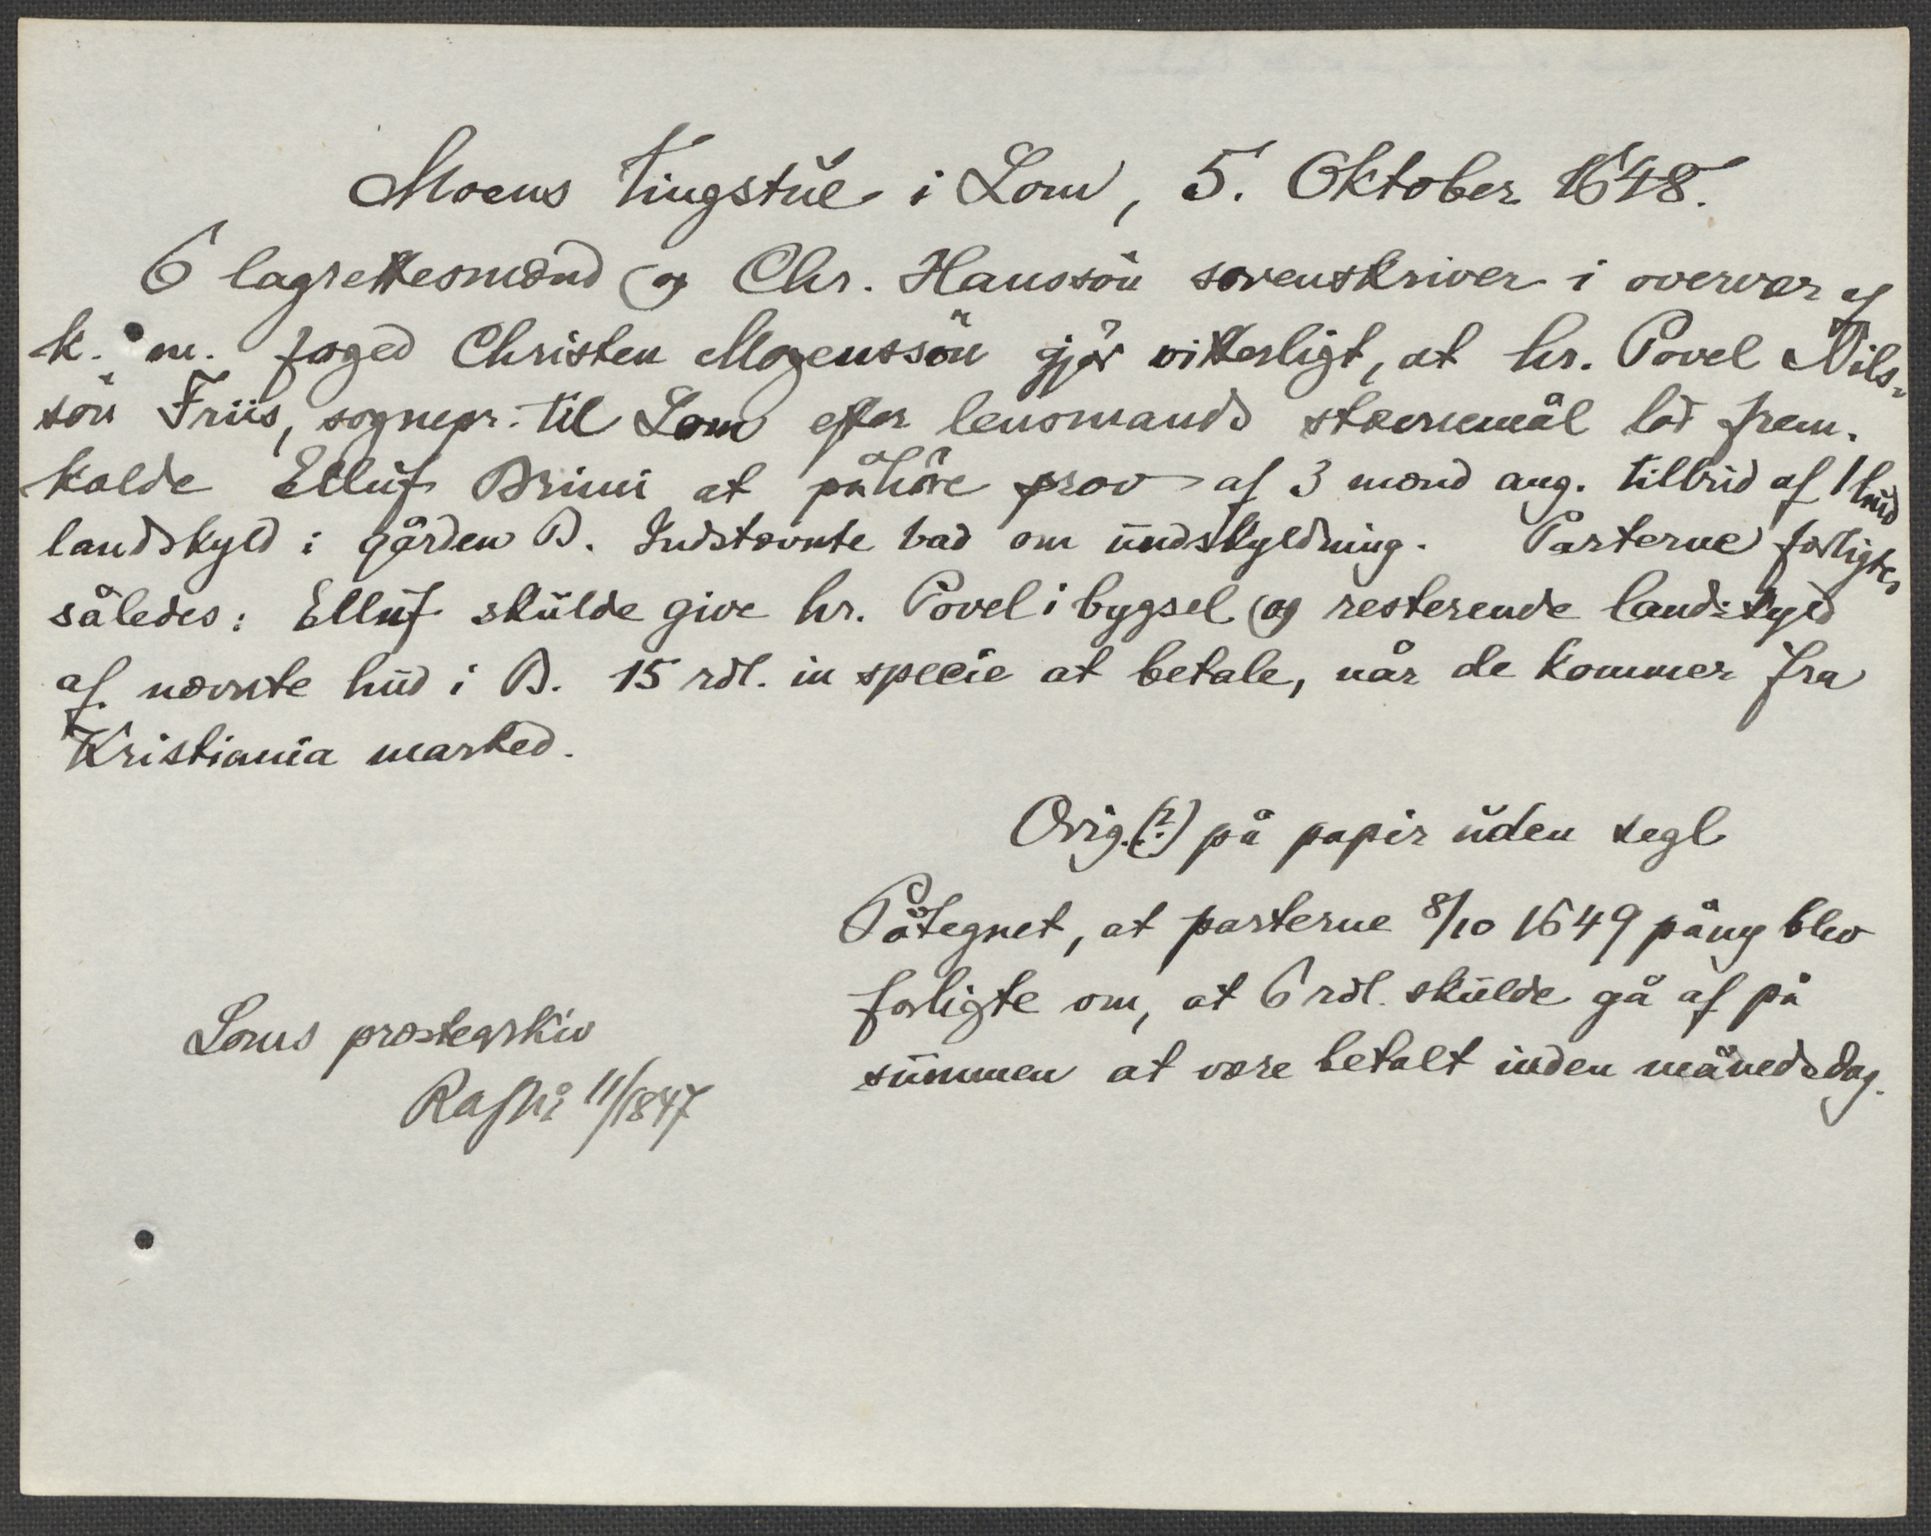 Moens Tingstue i Lom, 5. Oktober 1648.
6 lagrettesmænd og Chr. Hanssön sorenskriver i overvær af
k. m. foged Christen Mogenssön gjör vitterligt, at hr. Povel Nils-
sön Friis, sognepr. til Lom efter lensmands stævnemål lod frem-
kalde Elluf Brimi at påhöre prov af 3 mænd ang. tilbud af 1 hud
landskyld i gården B. Indstævnte bad om undskyldning. Parterne forligtes
således: Elluf skulde give hr. Povel i bygsel og resterende landskyld
af nævnte hud i B. 15 rdl. in specie at betale, når de kommer fra
Kristiania marked.
Orig.(?) på papir uden segl
Påtegnet, at parterne 8/10 1649 påny blev
forligte om, at 6 rdl. skulde gå af på
summen at være betalt inden månedsdag.
Loms præstearkiv
11/1847